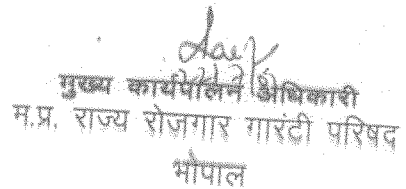 मुख्य कार्यपालन अधिकारी
म.प्र. राज्य रोज़गार गारंटी परिषद
भोपाल